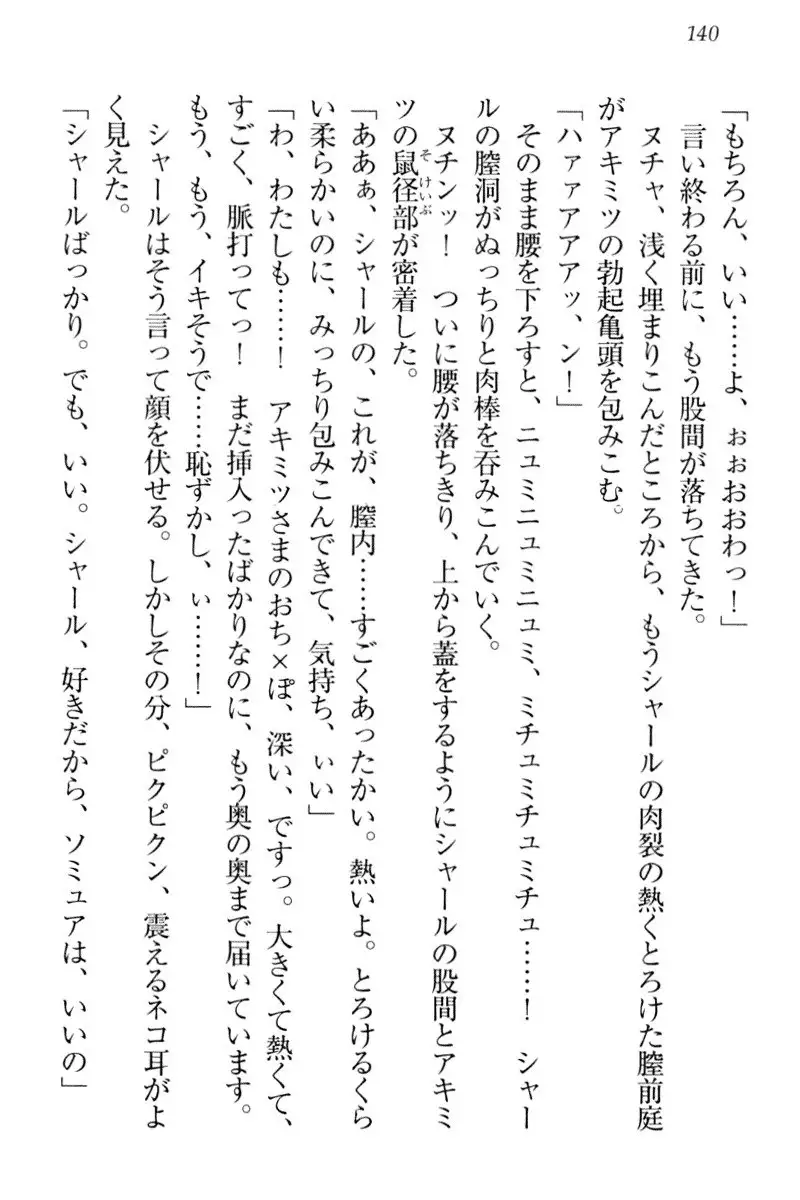 140
「もちろん、いい……よ、ぉぉおおわっ！」
言い終わる前に、もう股間が落ちてきた。
ヌチャ、浅く埋まりこんだところから、もうシャールの肉裂の熱くとろけた膣前庭
がアキミツの勃起亀頭を包みこむ。
「ハァァアアアッ、ン！」
そのまま腰を下ろすと、ニュミニュミニュミ、ミチュミチュミチュ……！　シャー
ルの膣洞がぬっちりと肉棒を呑みこんでいく。
ヌチンッ！　ついに腰が落ちきり、上から蓋をするようにシャールの股間とアキミ
ツの鼠径部が密着した。
「ああぁ、シャールの、これが、膣内……すごくあったかい。熱いよ。とろけるくら
い柔らかいのに、みっちり包みこんできて、気持ち、ぃい」
「わ、わたしも……！　アキミツさまのおち×ぽ、深い、ですっ。大きくて熱くて、
すごく、脈打ってっ！　まだ挿入ったばかりなのに、もう奥の奥まで届いています。
もう、もう、イキそうで……恥ずかし、ぃ……！」
シャールはそう言って顔を伏せる。しかしその分、ピクピクン、震えるネコ耳がよ
く見えた。
「シャールばっかり。でも、いい。シャール、好きだから、ソミュアは、いいの」